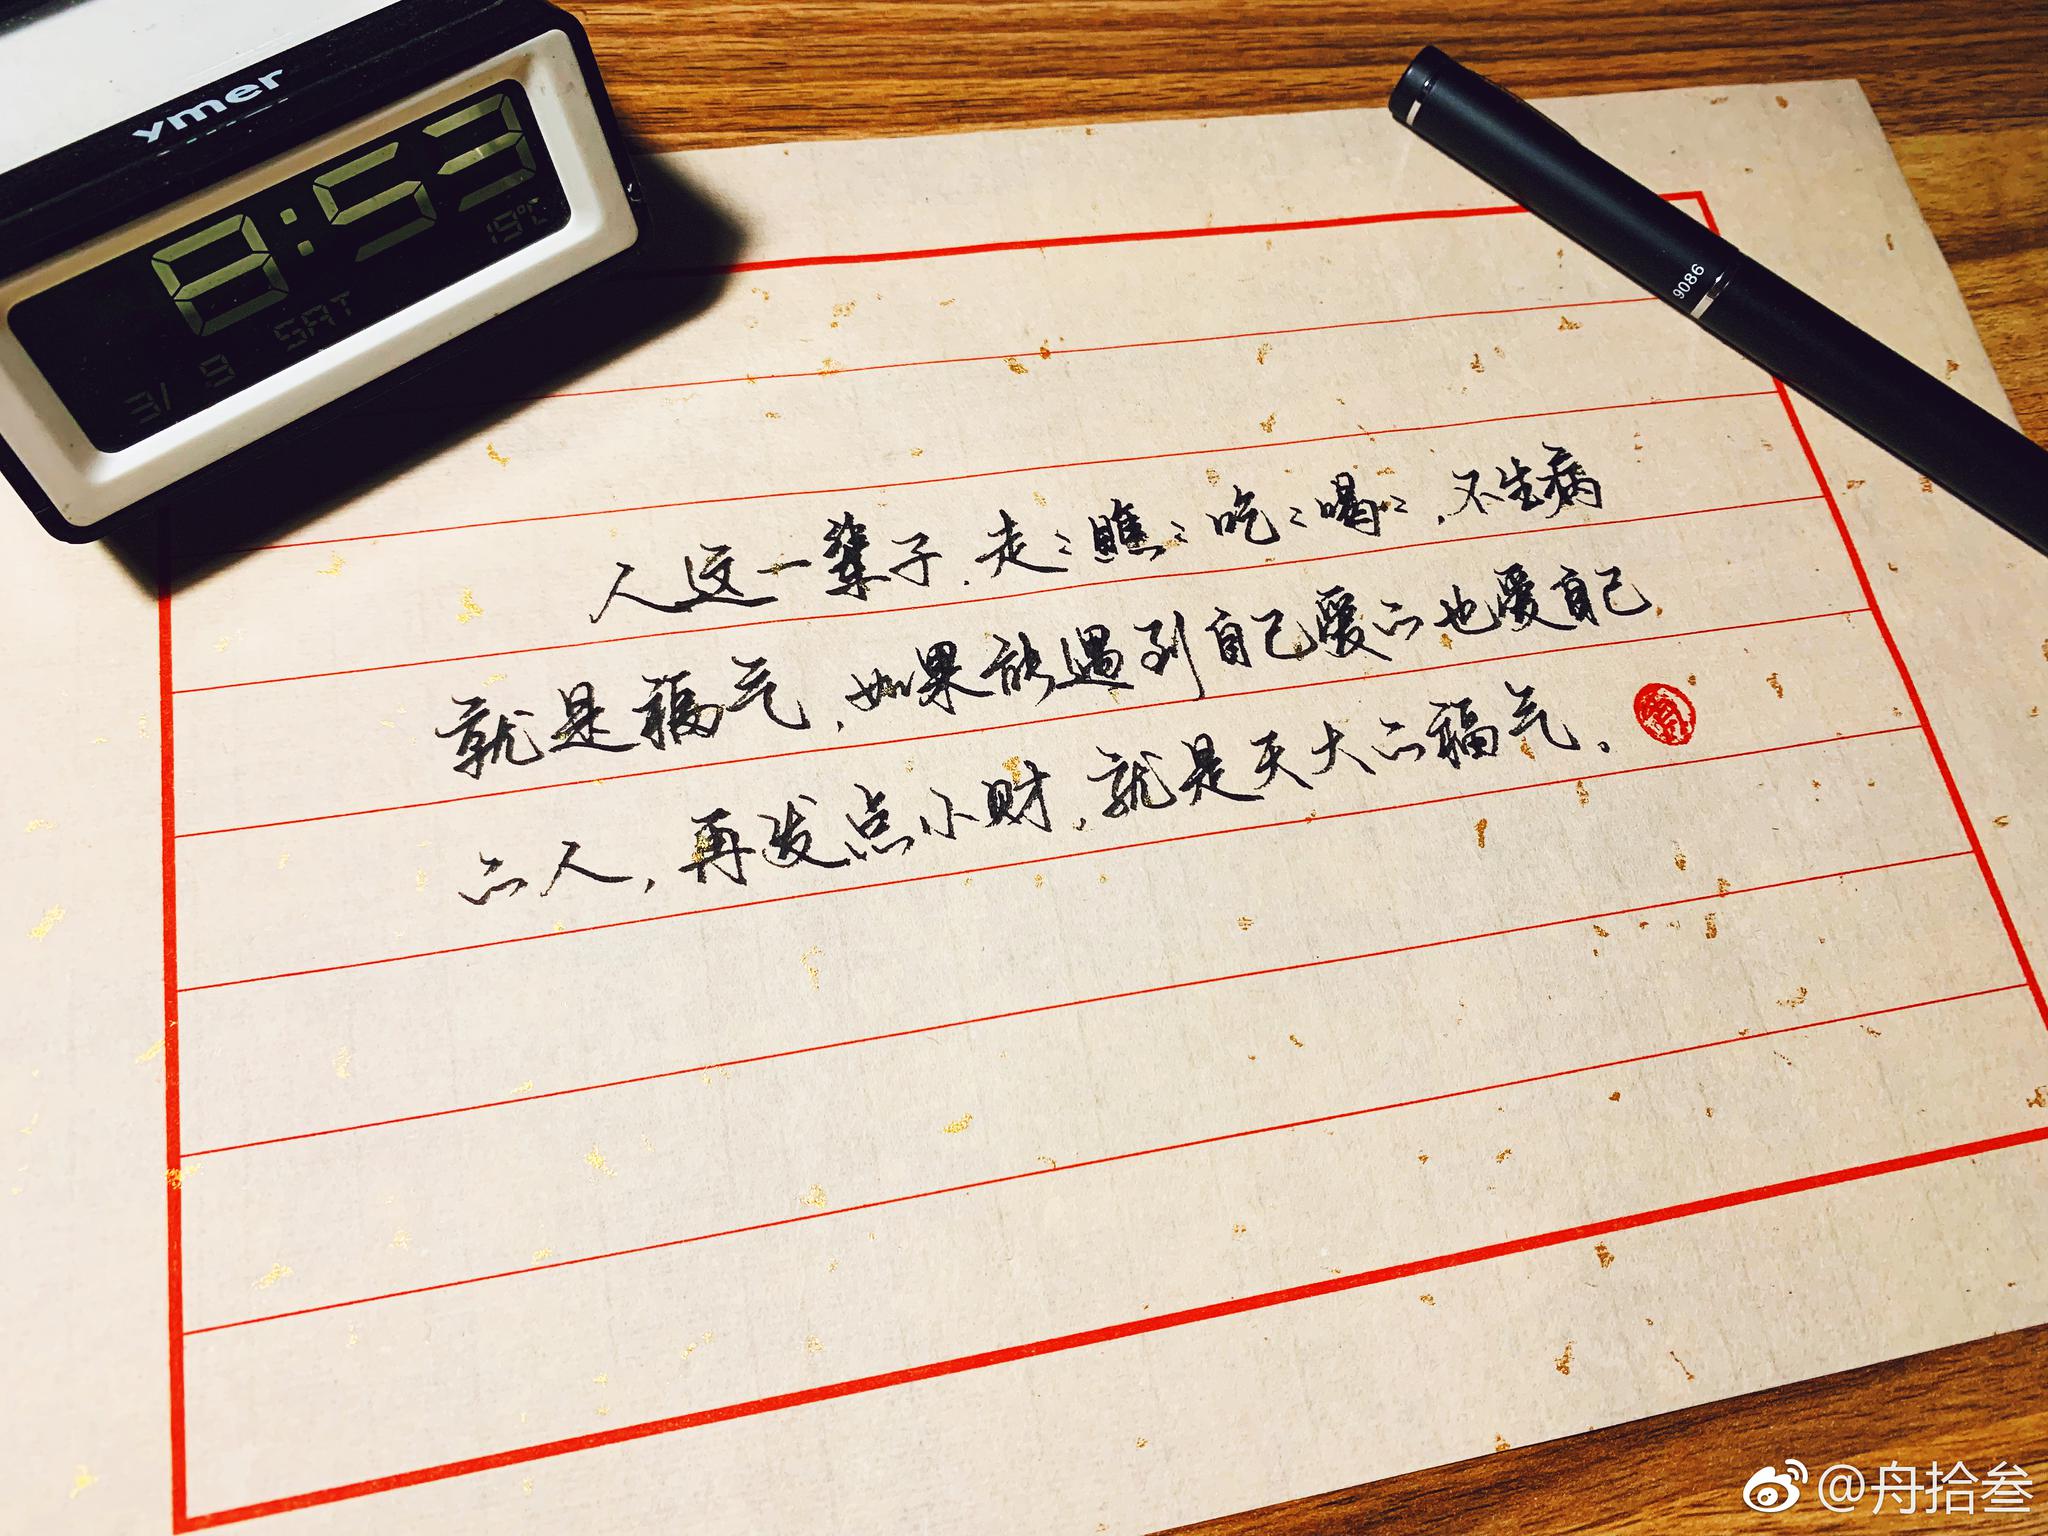 ymer
8:53
19℃
SAT
3/ 9
9086
人这一辈子.走〻瞧〻吃〻喝〻,不生病
就是福气,如果能遇到自己爱的也爱自己
的人,再发点小财,就是天大的福气。
@舟拾叁